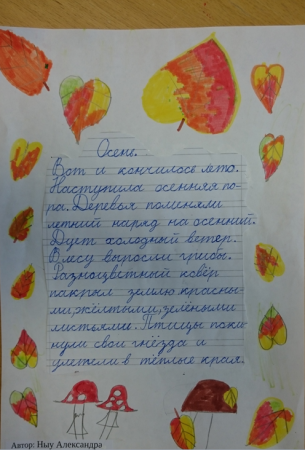 Осень.
Вот и кончилось лето.
Наступила осенняя по-
ра. Деревья поменяли
летний наряд на осенний.
Дует холодный ветер.
В лесу выросли грибы.
Разноцветный ковёр
пакрыл землю красны-
ми, жёлтыми, зелёными
листьями. Птицы поки-
нули свои гнёзда и
улетели в тёплые края.
Автор: Ныу Александра